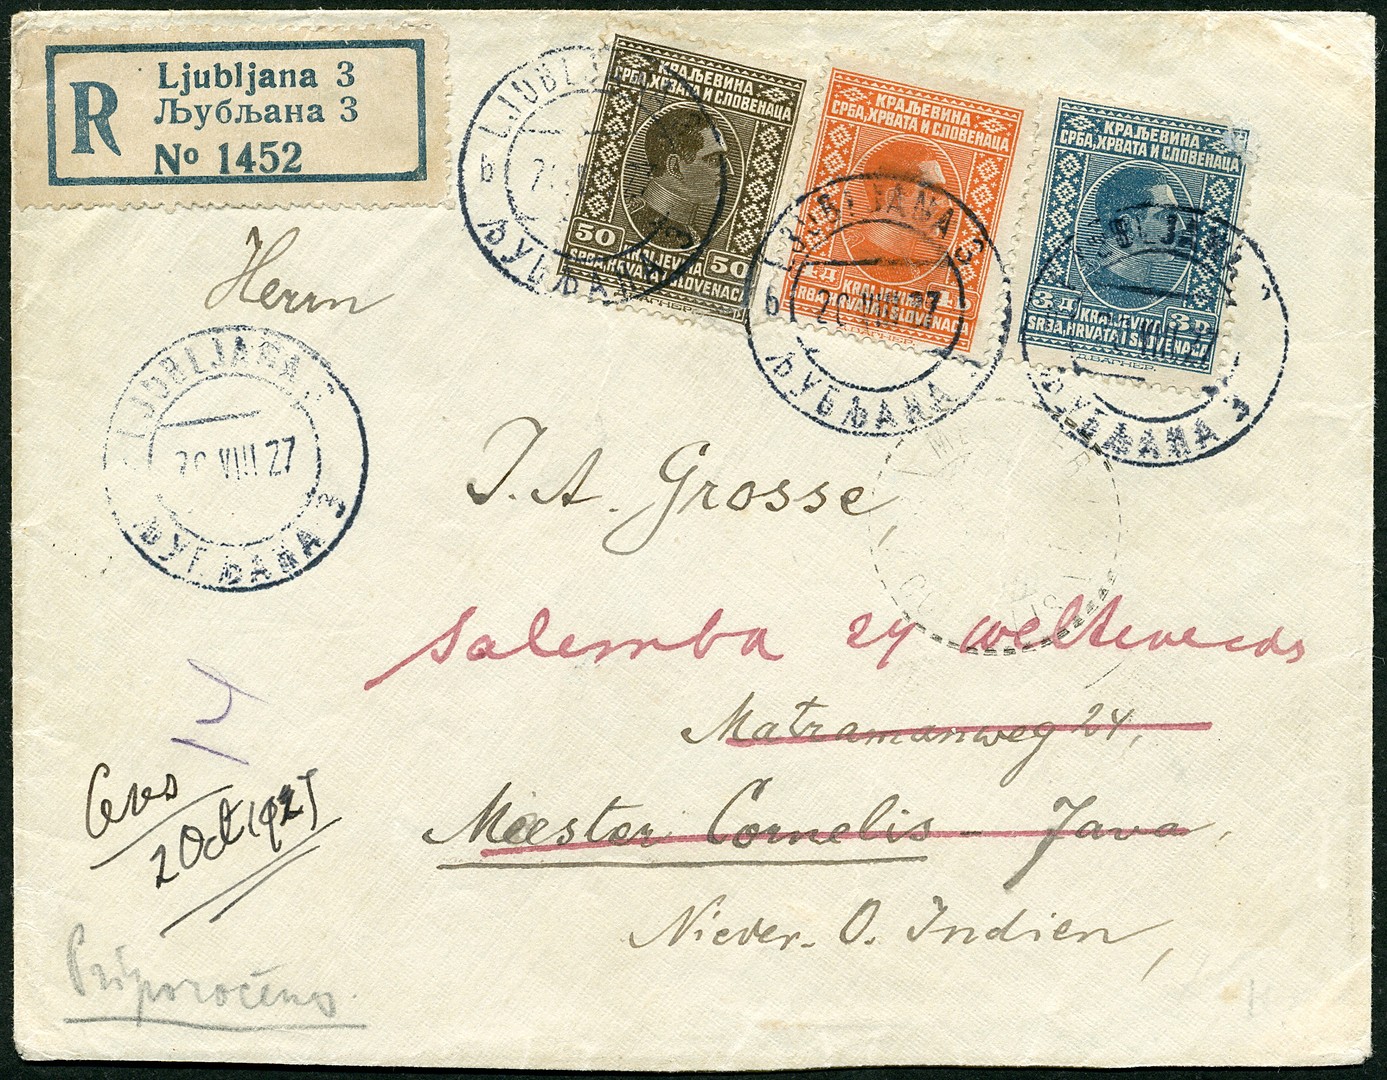 R
Ljubljana 3
Љубљана 3
No 1452
КРАЉЕВИНА
СРБА, ХРВАТА И СЛОВЕНАЦА
50 50
KRALJEVINA
SRBA, HRVATA I SLOVENACA
КРАЉЕВИНА
СРБА, ХРВАТА И СЛОВЕНАЦА
KRALJEVINA
SRBA, HRVATA I SLOVENACA
КРАЉЕВИНА
СРБА, ХРВАТА И СЛОВЕНАЦА
3 Д 3 D
KRALJEVINA
SRBA, HRVATA I SLOVENACA
LJUBLJANA
б
ЉУБЉАНА
LJUBLJANA 3
б 20 VIII 27
ЉУБЉАНА
LJUBLJANA
VIII
ЉУБЉАНА 3
Herrn
LJUBLJANA 3
VIII 27
ЉУБЉАНА 3
J. A. Grosse
Salemba 24 Weltevreden
Matramanweg 24,
Meester Cornelis - Java,
Nieder. O. Indien,
2 Oct 1927
Priporočeno